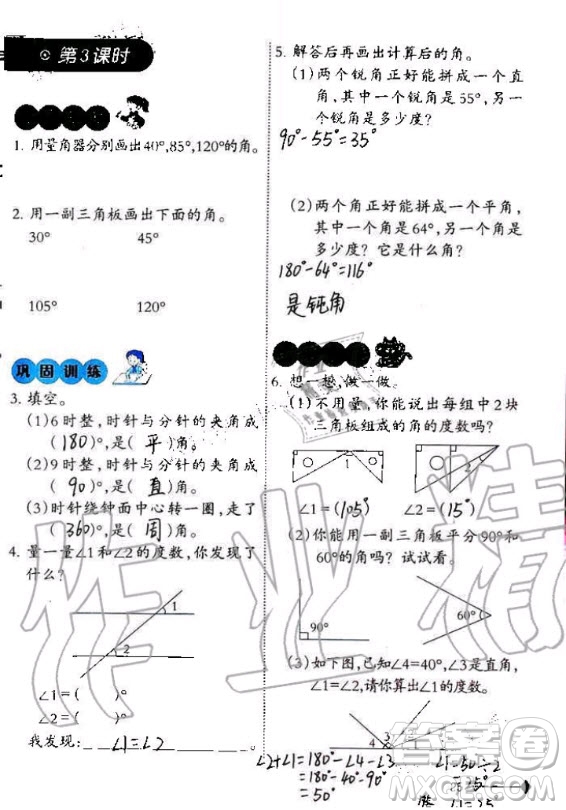 第3课时
1. 用量角器分别画出40°,85°,120°的角。
2. 用一副三角板画出下面的角。
30° 45°
105° 120°
巩固训练
3. 填空。
(1)6时整,时针与分针的夹角成
(180)°,是(平)角。
(2)9时整,时针与分针的夹角成
(90)°,是(直)角。
(3)时针绕钟面中心转一圈,走了
(360)°,是(周)角。
4. 量一量∠1和∠2的度数,你发现了
什么?
1
2
∠1=( )°
∠2=( )°
我发现:∠1=∠2。
5. 解答后再画出计算后的角。
(1)两个锐角正好能拼成一个直
角,其中一个锐角是55°,另一
个锐角是多少度?
90°-55°=35°
(2)两个角正好能拼成一个平角,
其中一个角是64°,另一个角是
多少度?它是什么角?
180°-64°=116°
是钝角
6. 想一想,做一做。
(1)不用量,你能说出每组中2块
三角板组成的角的度数吗?
1
2
∠1=(105°) ∠2=(15°)
(2)你能用一副三角板平分90°和
60°的角吗?试试看。
90°
60°
(3)如下图,已知∠4=40°,∠3是直角,
∠1=∠2,请你算出∠1的度数。
4 3
∠2+∠1=180°-∠4-∠3
=180°-40°-90°
=50°
∠1=50°÷2
作业精
答案圈